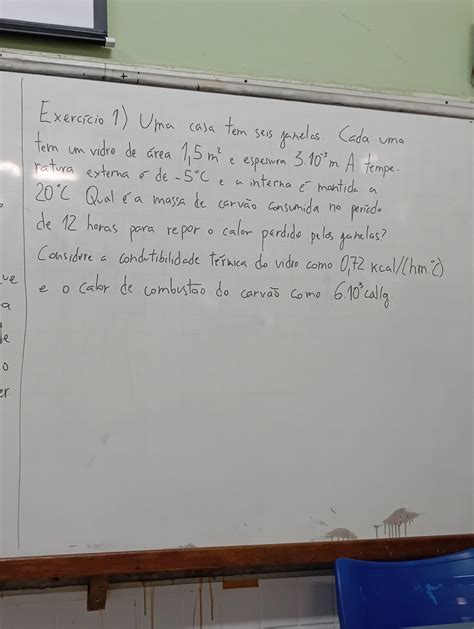 Exercício 1) Uma casa tem seis janelas. Cada uma
tem um vidro de área 1,5 m² e espesura 3.10⁻³ m A tempe-
ratura externa é de -5°C e a interna é mantida a
20°C. Qual é a massa de carvão consumida no período
de 12 horas para repor o calor perdido pelas janelas?
Considere a condutibilidade térmica do vidro como 0,72 Kcal/(hm.°C)
e o calor de combustão do carvão como 6.10³ cal/g.
ue
a
le
o
er.